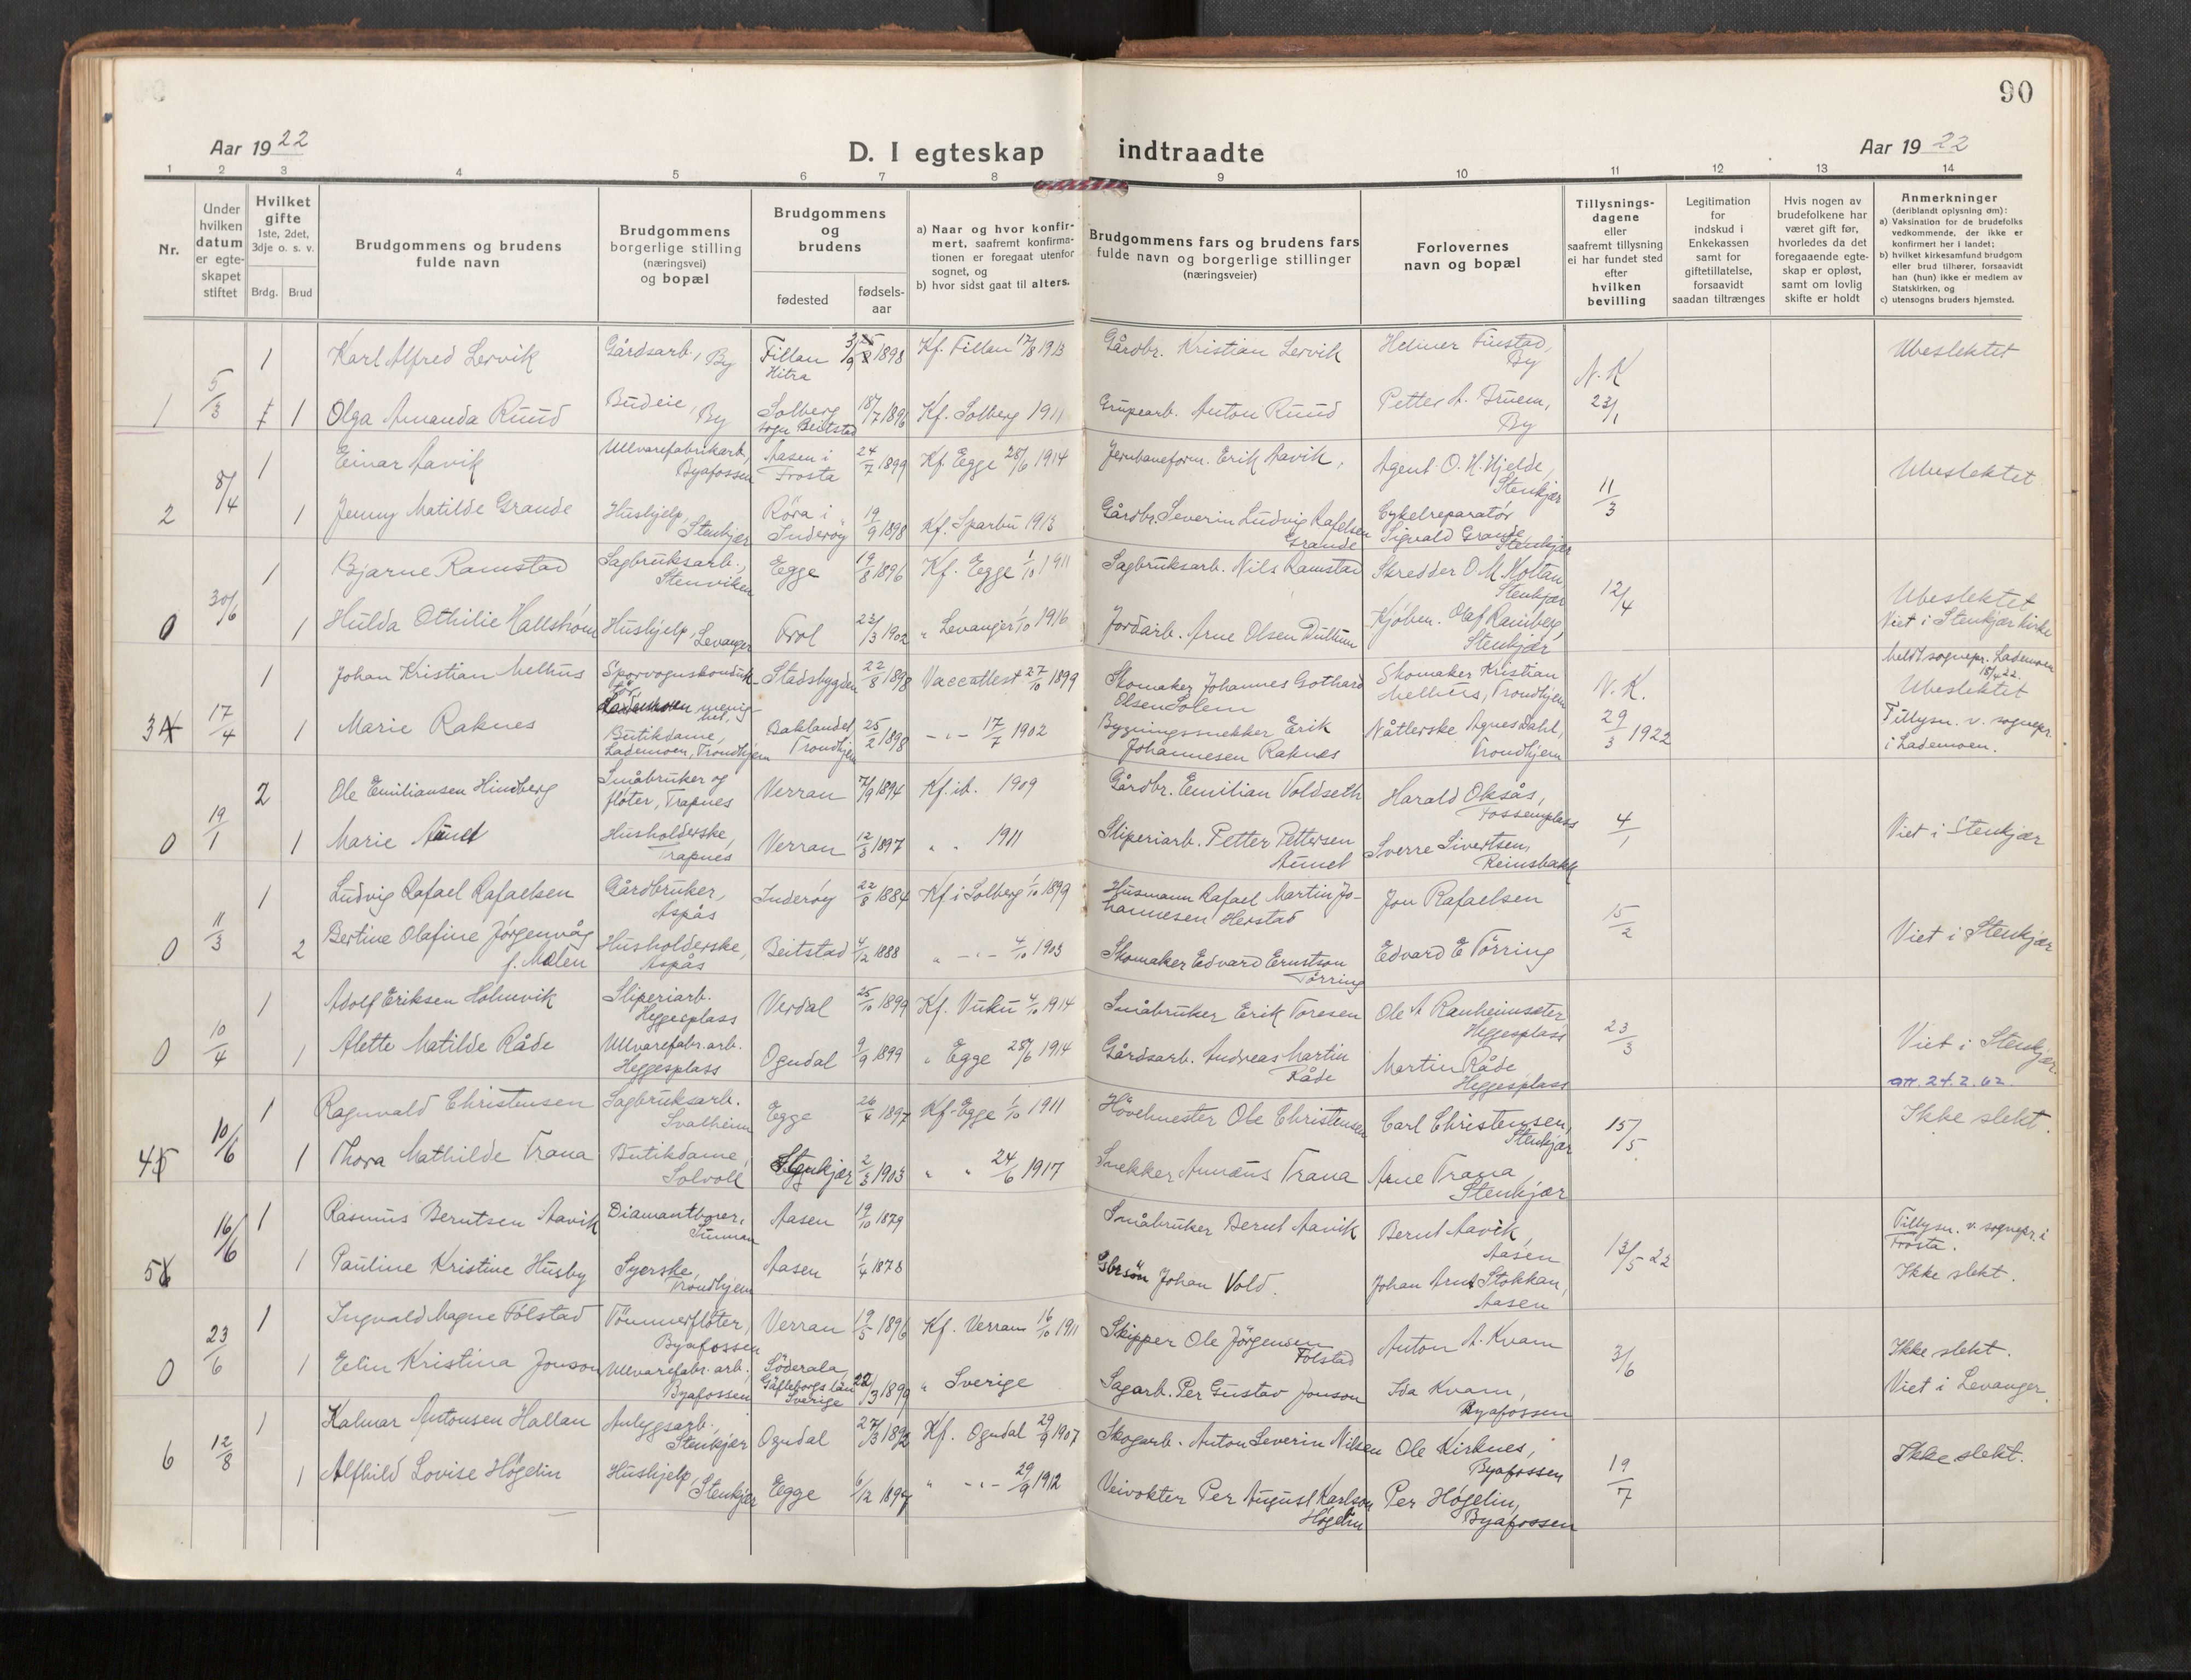 90
Aar 1922
D. I egteskap indtraadte
Aar 1922
1 2 3 4 5 6 7 8 9 10 11 12 13 14
Nr.
Under hvilken datum er egteskapet stiftet
Hvilket gifte 1ste, 2det, 3dje o. s. v.
Brdg. Brud
Brudgommens og brudens fulde navn
Brudgommens borgerlige stilling (næringsvei) og bopæl
Brudgommens og brudens
fødested
fødselsaar
a) Naar og hvor konfirmert, saafremt konfirmationen er foregaat utenfor sognet, og
b) hvor sidst gaat til alters.
Brudgommens fars og brudens fars fulde navn og borgerlige stillinger (næringsveier)
Forlovernes navn og bopæl
Tillysningsdagene eller saafremt tillysning ei har fundet sted efter hvilken bevilling
Legitimation for indskud i Enkekassen samt for giftetillatelse, forsaavidt saadan tiltrænges
Hvis nogen av brudefolkene har været gift før, hvorledes da det foregaaende egteskap er opløst, samt om lovlig skifte er holdt
Anmerkninger (deriblandt oplysning om):
a) Vaksination for de brudefolks vedkommende, der ikke er konfirmert her i landet;
b) hvilket kirkesamfund brudgom eller brud tilhører, forsaavidt han (hun) ikke er medlem av Statskirken, og
c) utensogns bruders hjemsted.
1 Karl Alfred Lervik Gårdsarb., By Fillan Hitra 1898 Kf. Fillan 17/8 1913 Gårdbr. Kristian Lervik Helmer Finstad, By Ubeslektet
1 5/3 1 Olga Amanda Ruud Budeie, By Solberg sogn Beitstad 18/7 1896 Kf. Solberg 1911 Grupearb. Anton Ruud Petter A. Bruem, By N.K 23/1
1 Einar Aavik Ullvarefabrikarb., Byafossen Aasen i Frosta 24/7 1899 Kf. Egge 28/6 1914 Jernbaneform. Erik Aavik, Agent O. H. Hjelde, Stenkjær Ubeslektet
2 8/4 1 Jenny Matilde Grande Hushjelp, Stenkjær Röra i Inderöy 19/9 1898 Kf. Sparbu 1913 Gårdbr. Severin Ludvig Rafelsen Grande Cykelreparatör Sigvald Grande Stenkjær 11/3
1 Bjarne Ramstad Sagbruksarb., Stenviken Egge 19/8 1896 Kf. Egge 1/10 1911 Sagbruksarb. Nils Ramstad Skredder O. M. Holtan Stenkjær Ubeslektet
0 30/6 1 Hulda Othilie Hallström Hushjelp, Levanger Frol 23/3 1902 " Levanger 1/10 1916 Jordarb. Arne Olsen Kjöbm. Olaf Ramberg, Stenkjær 12/4 Viet i Stenkjær kirke
1 Johan Kristian Melhus Sporvognskonduk-tör Stadsbygden 22/8 1898 Vaccattest 27/10 1899 Skomaker Johannes Gothard Olsen Solem Skomaker Kristian Melhus, Trondhjem N.K. Meldt sognepr. Lademoen 18/4 22. Ubeslektet
3 17/4 1 Marie Raknes Butikdame, Lademoen, Trondhjem Baklandet Trondhjem 25/2 1898 -"- 17/7 1902 Bygningssnekker Erik Johannesen Raknes Nåtlerske Agnes Dahl, Trondhjem 29/3 1922 Tillysn. v. sognepr. i Lademoen.
2 Ole Emiliansen Hindberg Småbruker og flöter, Trapnes Verran 7/9 1894 Kf. ib. 1909 Gårdbr. Emilian Voldseth Harald Oksås, Fossemplass
0 19/1 1 Marie Aunet Husholderske, Trapnes Verran 12/8 1897 " " 1911 Sliperiarb. Petter Pettersen Aunet Sverre Sivertsen, Reinsbakk 4/1 Viet i Stenkjær
1 Ludvig Rafael Rafaelsen Gårdbruker, Aspås Inderöy 22/8 1884 Kf i Solberg 1/10 1899 Husmann Rafael Martin Johannesen Herstad Jon Rafaelsen
0 11/3 2 Bertine Olafine Jörgenvåg f. Malen Husholderske, Aspås Beitstad 4/12 1888 " -"- 4/10 1903 Skomaker Edvard Ernstson Törring Edvard E Törring 15/2 Viet i Stenkjær
1 Adolf Eriksen Holmvik Sliperiarb. Heggesplass Verdal 25/10 1899 Kf. Vuku 4/10 1914 Småbruker Erik Toresen Ole A Ranheimsæter Heggesplass
0 10/4 1 Alette Matilde Råde Ullvarefabr.arb. Heggesplass Ogndal 9/9 1899 " Egge 28/6 1914 Gårdsarb. Andreas Martin Råde Martin Råde Heggesplass 23/3 Viet i Stenkjær.
att. 24. 2. 62.
1 Ragnvald Christensen Sagbruksarb. Svalheim Egge 26/4 1897 Kf. Egge 1/10 1911 Hövelmester Ole Christensen Carl Christensen, Stenkjær Ikke slekt.
4 10/6 1 Thora Mathilde Trana Butikdame, Solvoll Stenkjær 2/3 1903 " " 24/6 1917 Snekker Annæus Trana Arne Trana Stenkjær 15/5
1 Rasmus Berntsen Aavik Diamantborer, Aasen 19/10 1879 Småbruker Bernt Aavik Bernt Aavik, Aasen Tillysn. v. sognepr. i Frosta.
5 16/6 1 Pauline Kristine Husby Syerske, Trondhjem Aasen 1/4 1878 Gbrsön Johan Vold. Johan Arnt Stokkan, Aasen 13/5-22 Ikke slekt.
1 Ingvald Magne Fölstad Tömmerflöter, Byafossen Verran 19/5 1896 Kf. Verran 16/10 1911 Skipper Ole Jörgensen Fölstad Anton A. Kvam Ikke slekt.
0 23/6 1 Elin Kristina Jonson Ullvarefabr. arb. Byafossen Söderala, Gäfleborgs län Sverige 22/3 1899 " Sverige Sagarb. Per Gustav Jonson Ida Kvam, Byafossen 3/6 Viet i Levanger.
1 Kalmar Antonsen Hallan Anleggsarb., Stenkjær Ogndal 27/3 1892 Kf. Ogndal 29/9 1907 Skogarb. Anton Severin Nilsen Ole Kirknes, Byafossen Ikke slekt.
6 12/8 1 Alfhild Lovise Högelin Hushjelp, Stenkjær Egge 6/12 1897 " -"- 29/9 1912 Veivokter Per August Karlson Högelin Per Högelin, Byafossen 19/7